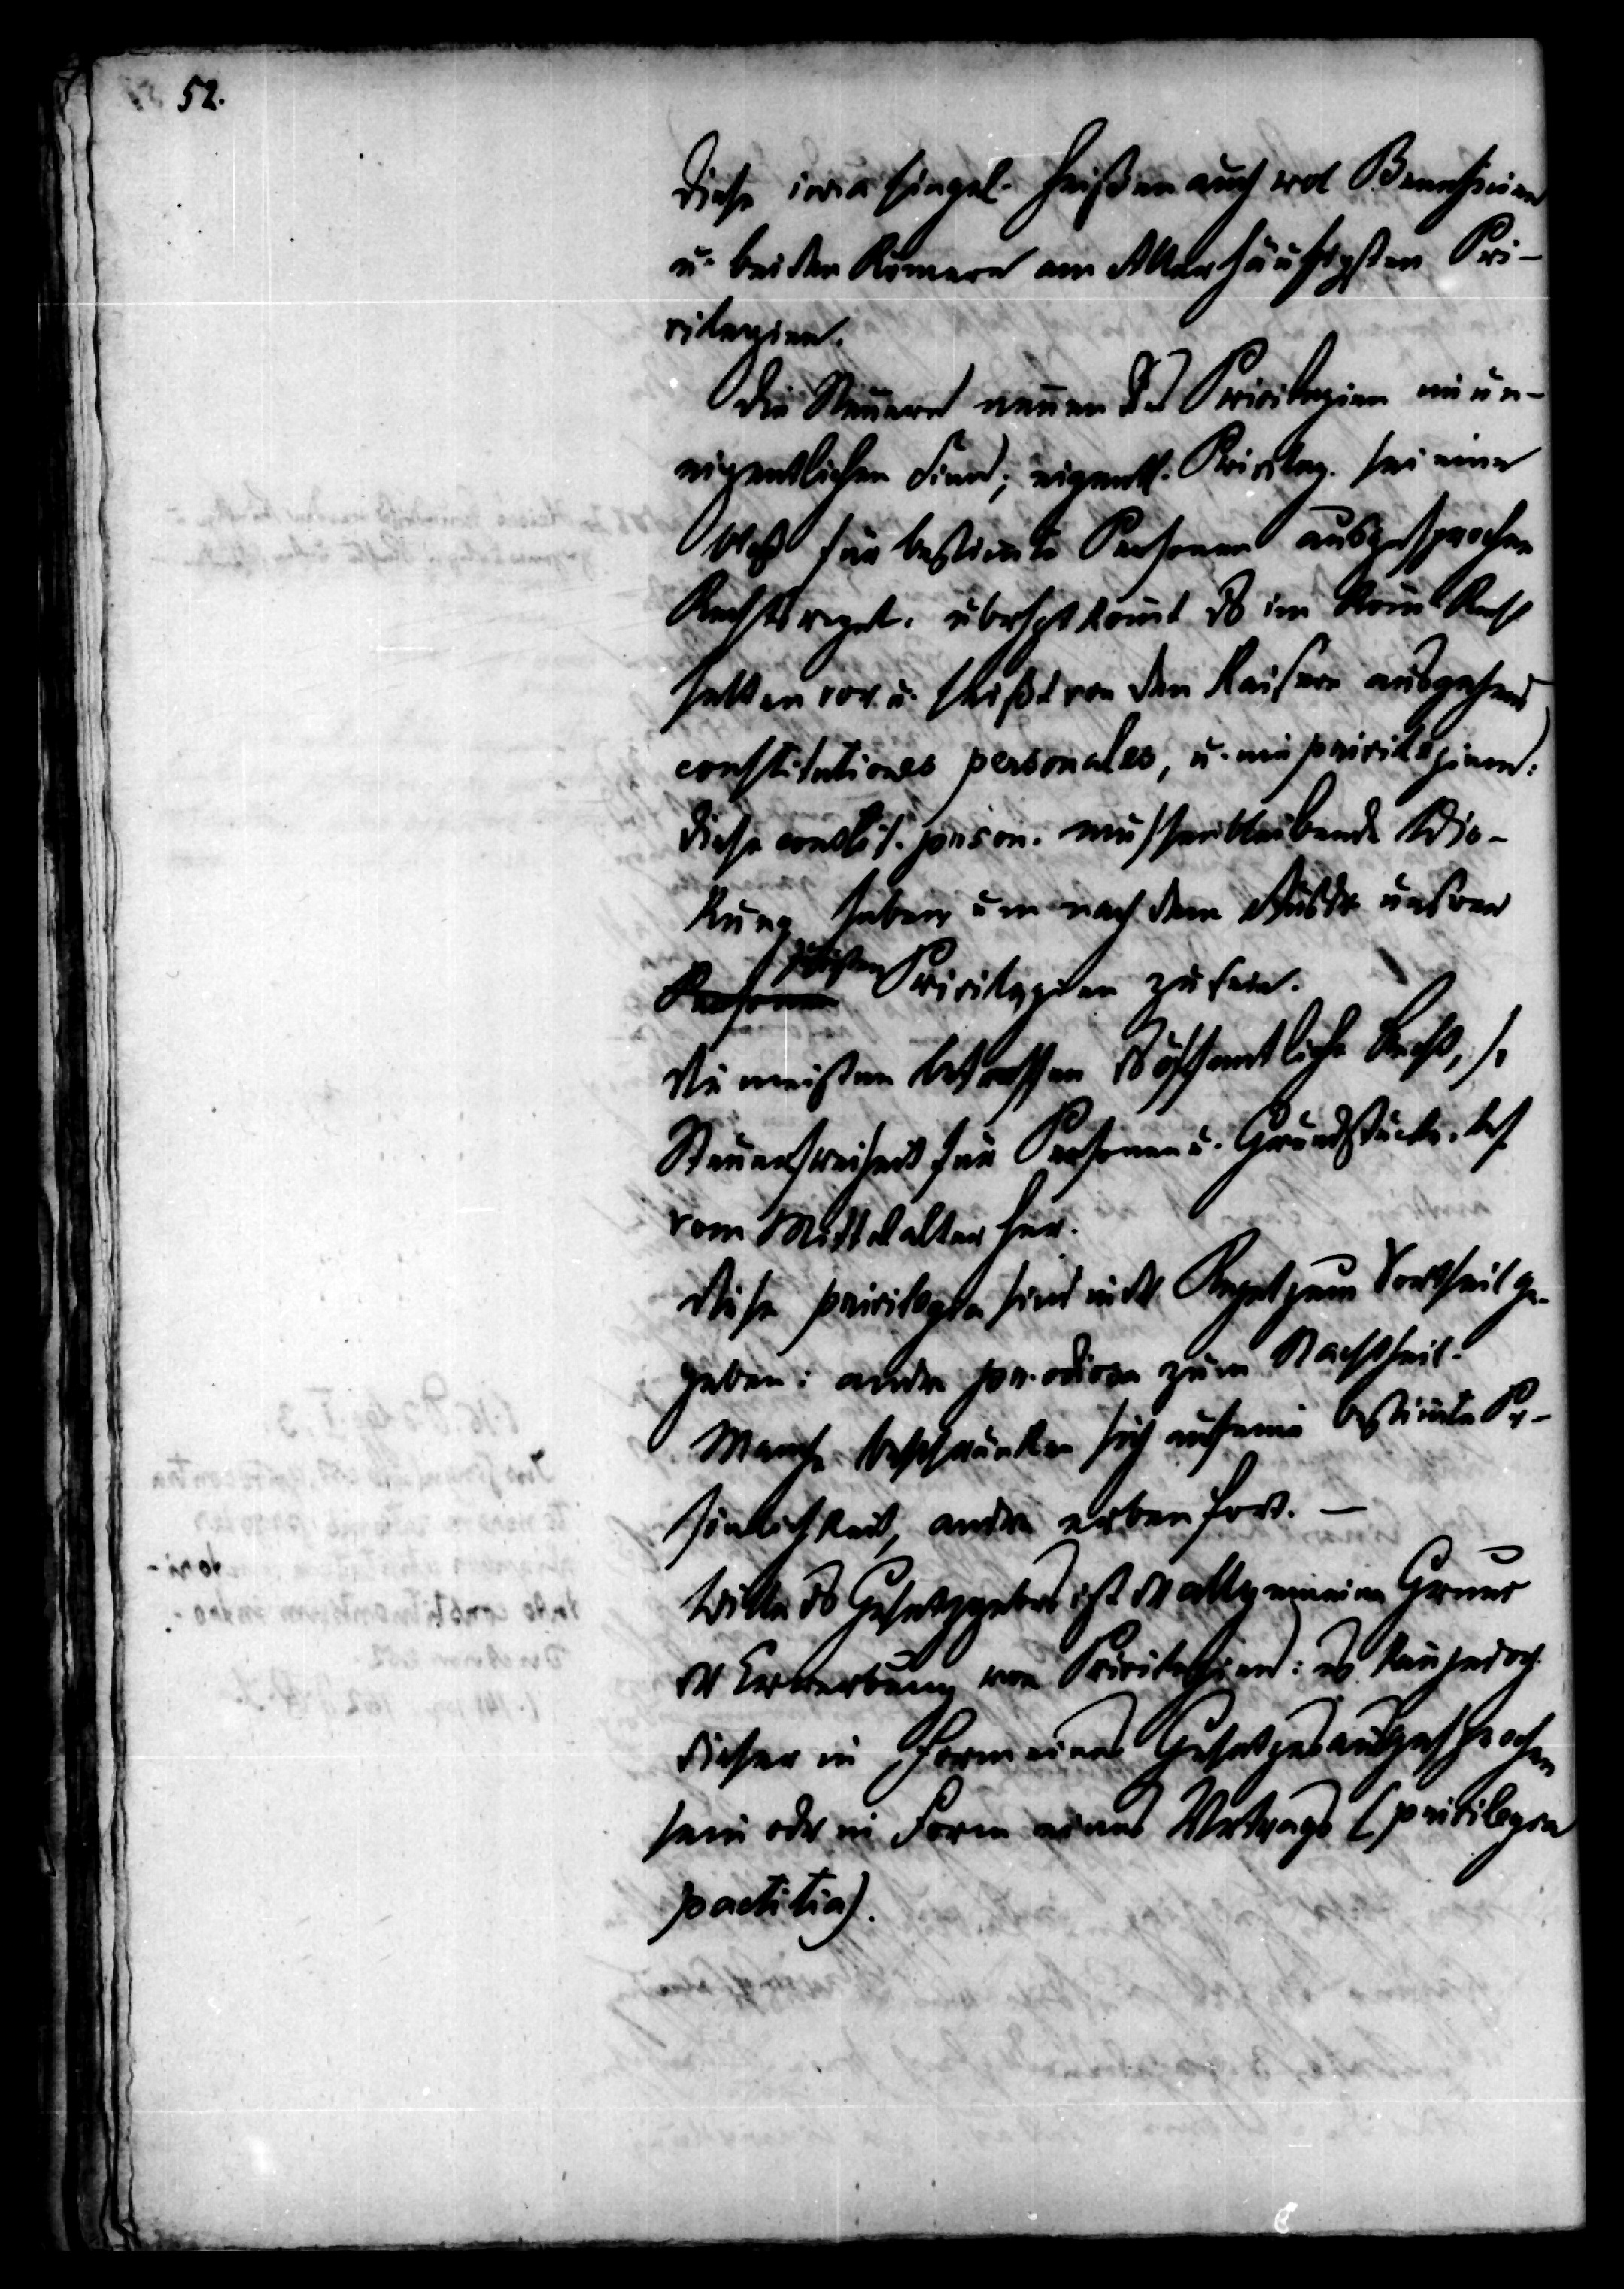 52.
Diese iura singul. heißen auch wol Beneficien
u. bei den Römern am Allerhäufigsten Pri-
vilegien.
Die Neuern nennen das Privilegien im un-
eigentlichen Sinn; eigentl. Privileg. sei eine
bloß für bestimte Personen ausgesprochene
Rechtsregel. komt es im Röm Recht
selten vor u. heißt von den Kaisern ausgehend
constitutiones personales, u. nie privilegium:
Diese constit. person. muß bleibende Wir-
kung haben um nach dem Ausdr unsrer
Privilegien zu sein.
Die meisten betreffen das öffentliche Recht, s.
Steuerfreiheit für Personen u. Grundstücke. bes.
vom Mittelalter her.
Diese privilegia sind in der Regel zum Vortheil ge-
geben: andre pr. odiosa zum Nachtheil.
Manche beschränken sich auf eine bestimte Per-
sönlichkeit, andre erben fort. –
Wille des Gesetzgebers ist der allgemeine Grund
der Erwerbung von Privilegien: es kan jedoch
dieser in Form eines Gesetzes ausgesprochen
sein oder in Form eines Vertrags (privilegia
pactitia).